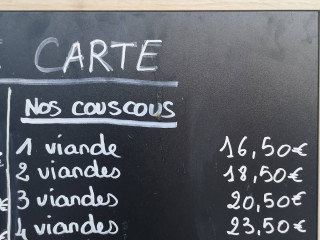 CARTE
Nos couscous
1 viande 16,50€
2 viandes 18,50€
3 viandes 20,50€
4 viandes 23,50€